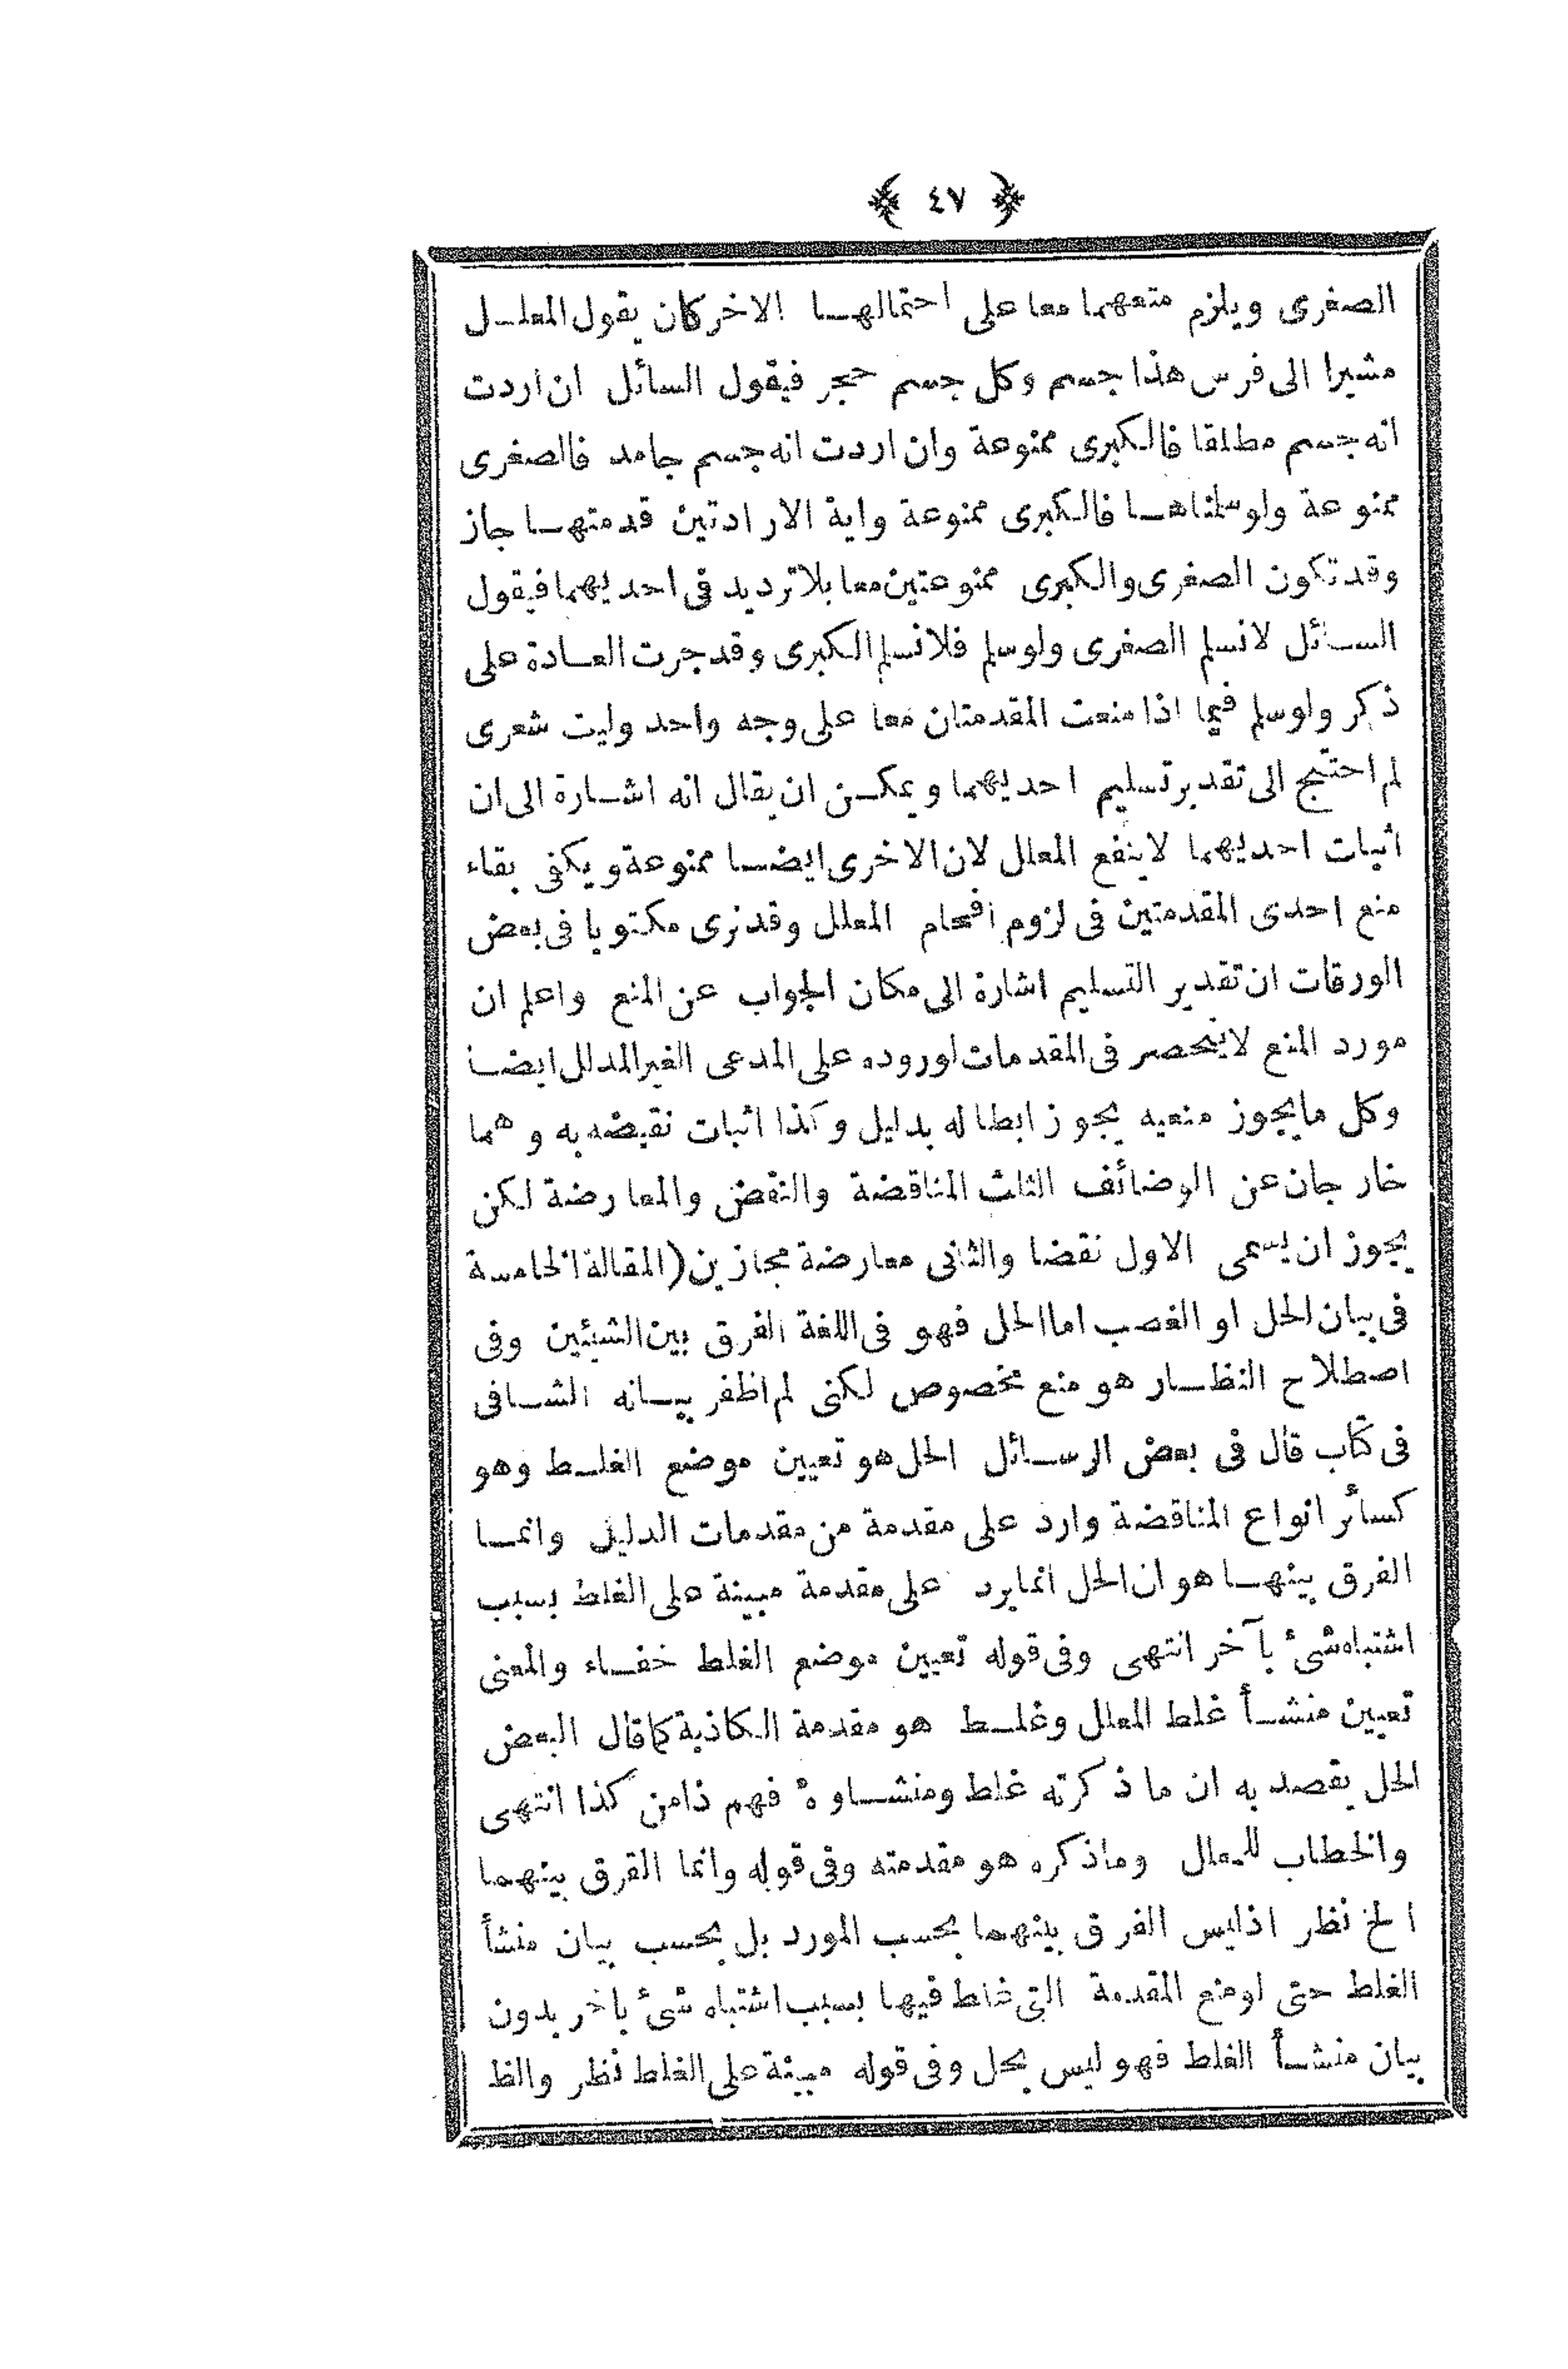 ﴿ ٤٧ ﴾
الصغرى ويلزم منعهما معا على احتمالها الاخر كان يقول المعلل
مشيرا الى فرس هذا جسم وكل جسم حجر فيقول السائل ان اردت
انه جسم مطلقا فالكبرى ممنوعة وان اردت انه جسم جامد فالصغرى
ممنوعة ولو سلمناها فالكبرى ممنوعة واية الارادتين قدمتها جاز
وقد تكون الصغرى والكبرى ممنوعتين معا بلا ترديد فى احديهما فيقول
السائل لانسلم الصغرى ولو سلم فلانسلم الكبرى وقد جرت العادة على
ذكر ولو سلم فيما اذا منعت المقدمتان معا على وجه واحد وليت شعرى
لم احتيج الى تقدير تسليم احديهما ويمكن ان يقال انه اشارة الى ان
اثبات احديهما لاينفع المعلل لان الاخرى ايضا ممنوعة ويكفى بقاء
منع احدى المقدمتين فى لزوم افحام المعلل وقد نرى مكتوبا فى بعض
الورقات ان تقدير التسليم اشارة الى مكان الجواب عن المنع واعلم ان
مورد المنع لاينحصر فى المقدمات لوروده على المدعى الغير المدلل ايضا
وكل مايجوز منعيه يجوز ابطاله بدليل وكذا اثبات نقيضه به وهما
خارجان عن الوضائف الثلث المناقضة والنقض والمعارضة لكن
يجوز ان يسمى الاول نقضا والثانى معارضة مجازين (المقالة الخامسة
فى بيان الحل او الغصب اما الحل فهو فى اللغة الفرق بين الشيئين وفى
اصطلاح النظار هو منع مخصوص لكنى لم اظفر ببيانه الشافى
فى كتاب قال فى بعض الرسائل الحل هو تعيين موضع الغلط وهو
كسائر انواع المناقضة وارد على مقدمة من مقدمات الدليل وانما
الفرق بينها هو ان الحل انما يرد على مقدمة مبينة على الغلط بسبب
اشتباه شئ بآخر انتهى وفى قوله تعيين موضع الغلط خفاء والمعنى
تعيين منشأ غلط المعلل وغلط هو مقدمة الكاذبة كما قال البعض
الحل يقصد به ان ما ذكرته غلط ومنشاوه فهم ذا من كذا انتهى
والخطاب للمعلل وماذكره هو مقدمته وفى قوله وانما القرق بينهما
الخ نظر اذ ليس الفرق بينهما بحسب المورد بل بحسب بيان منشأ
الغلط حتى لو منع المقدمة التى غلط فيها بسبب اشتباه شئ باخر بدون
بيان منشأ الغلط فهو ليس بحل وفى قوله مبينة على الغلط نظر والظ